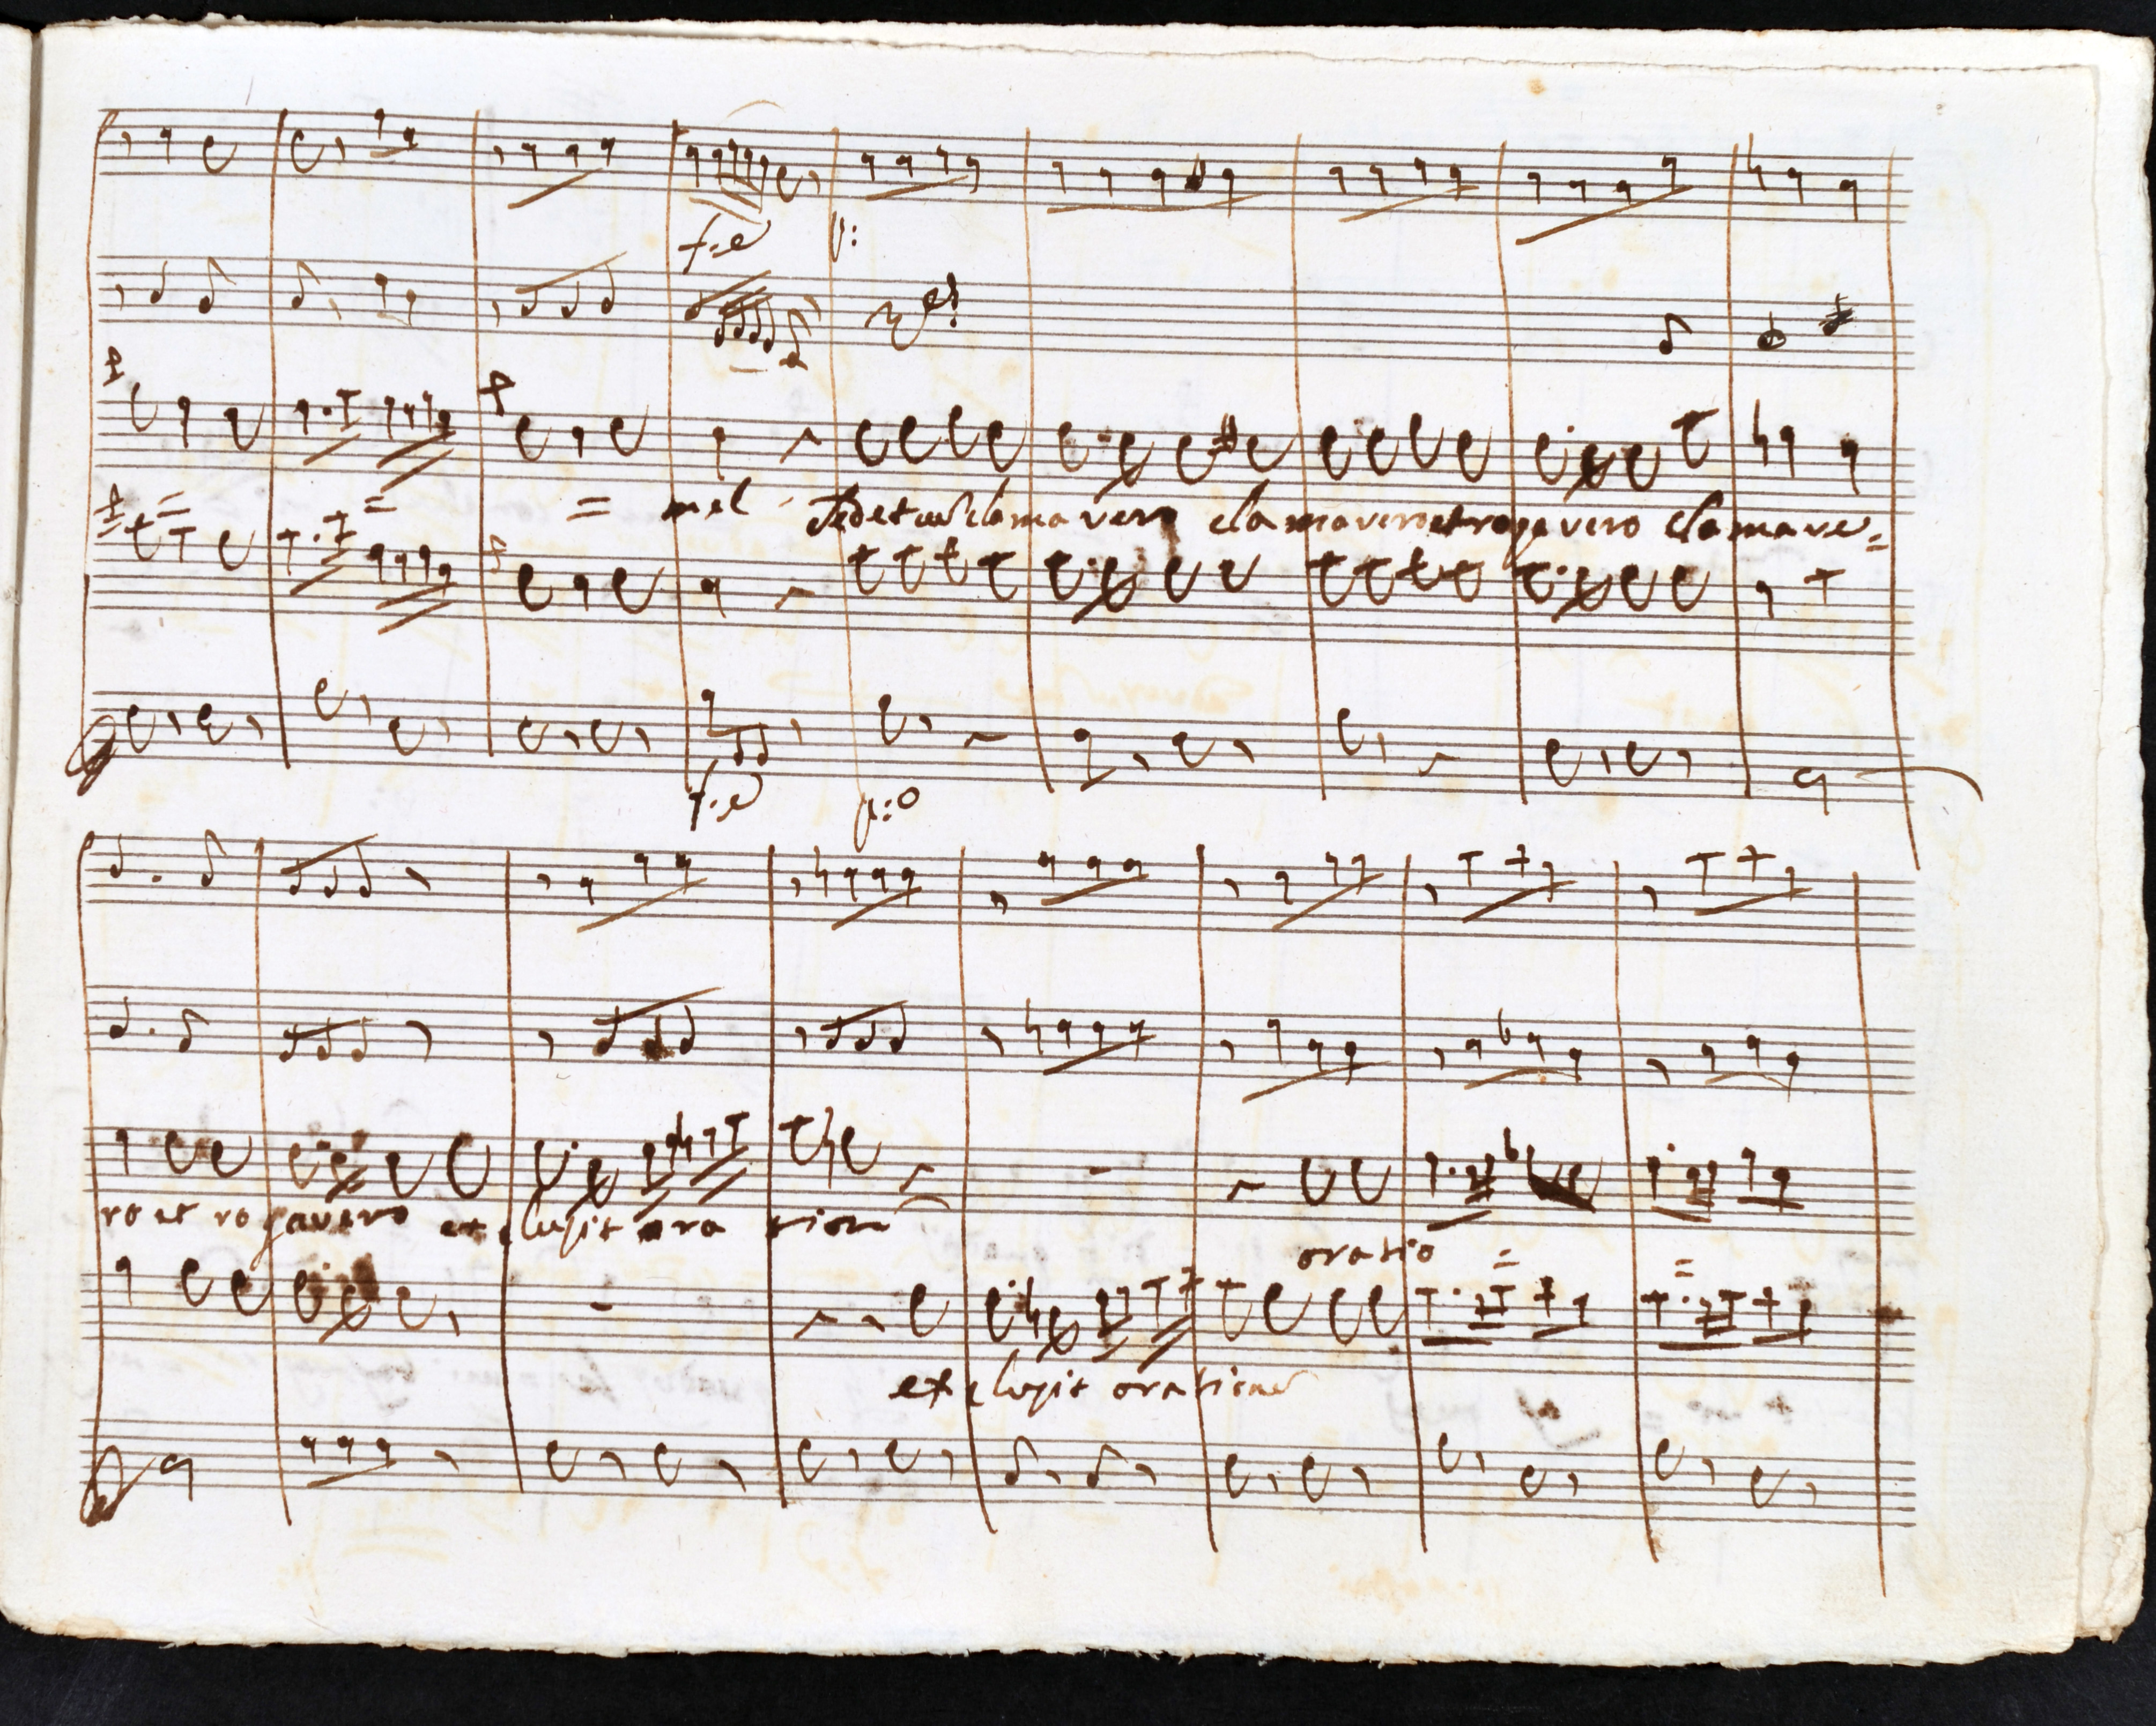 f:e p:
= = = mel Sed et cum clamavero clamavero et rogavero clamave=
f:e p:o
ro et rogavero exclusit ora tion
oratio = =
exclusit oratione